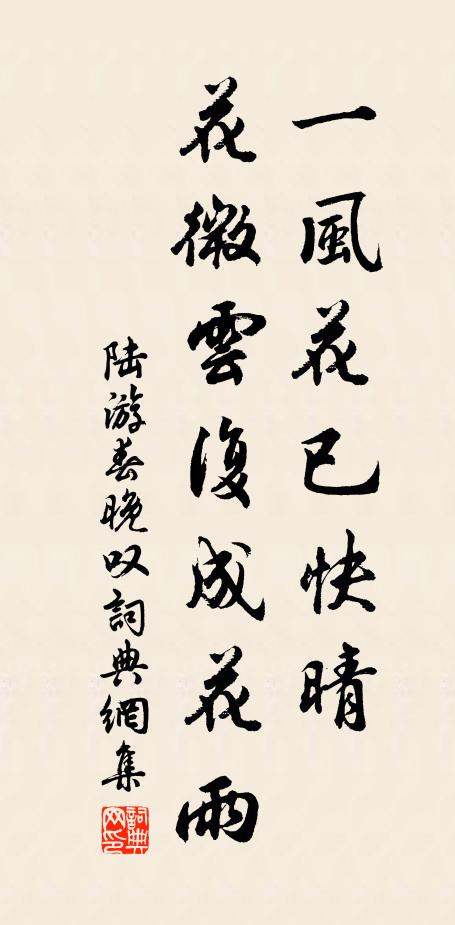 一風花已快晴
花微雲復成花雨
陆游春晚叹詞典網集
詞典网印